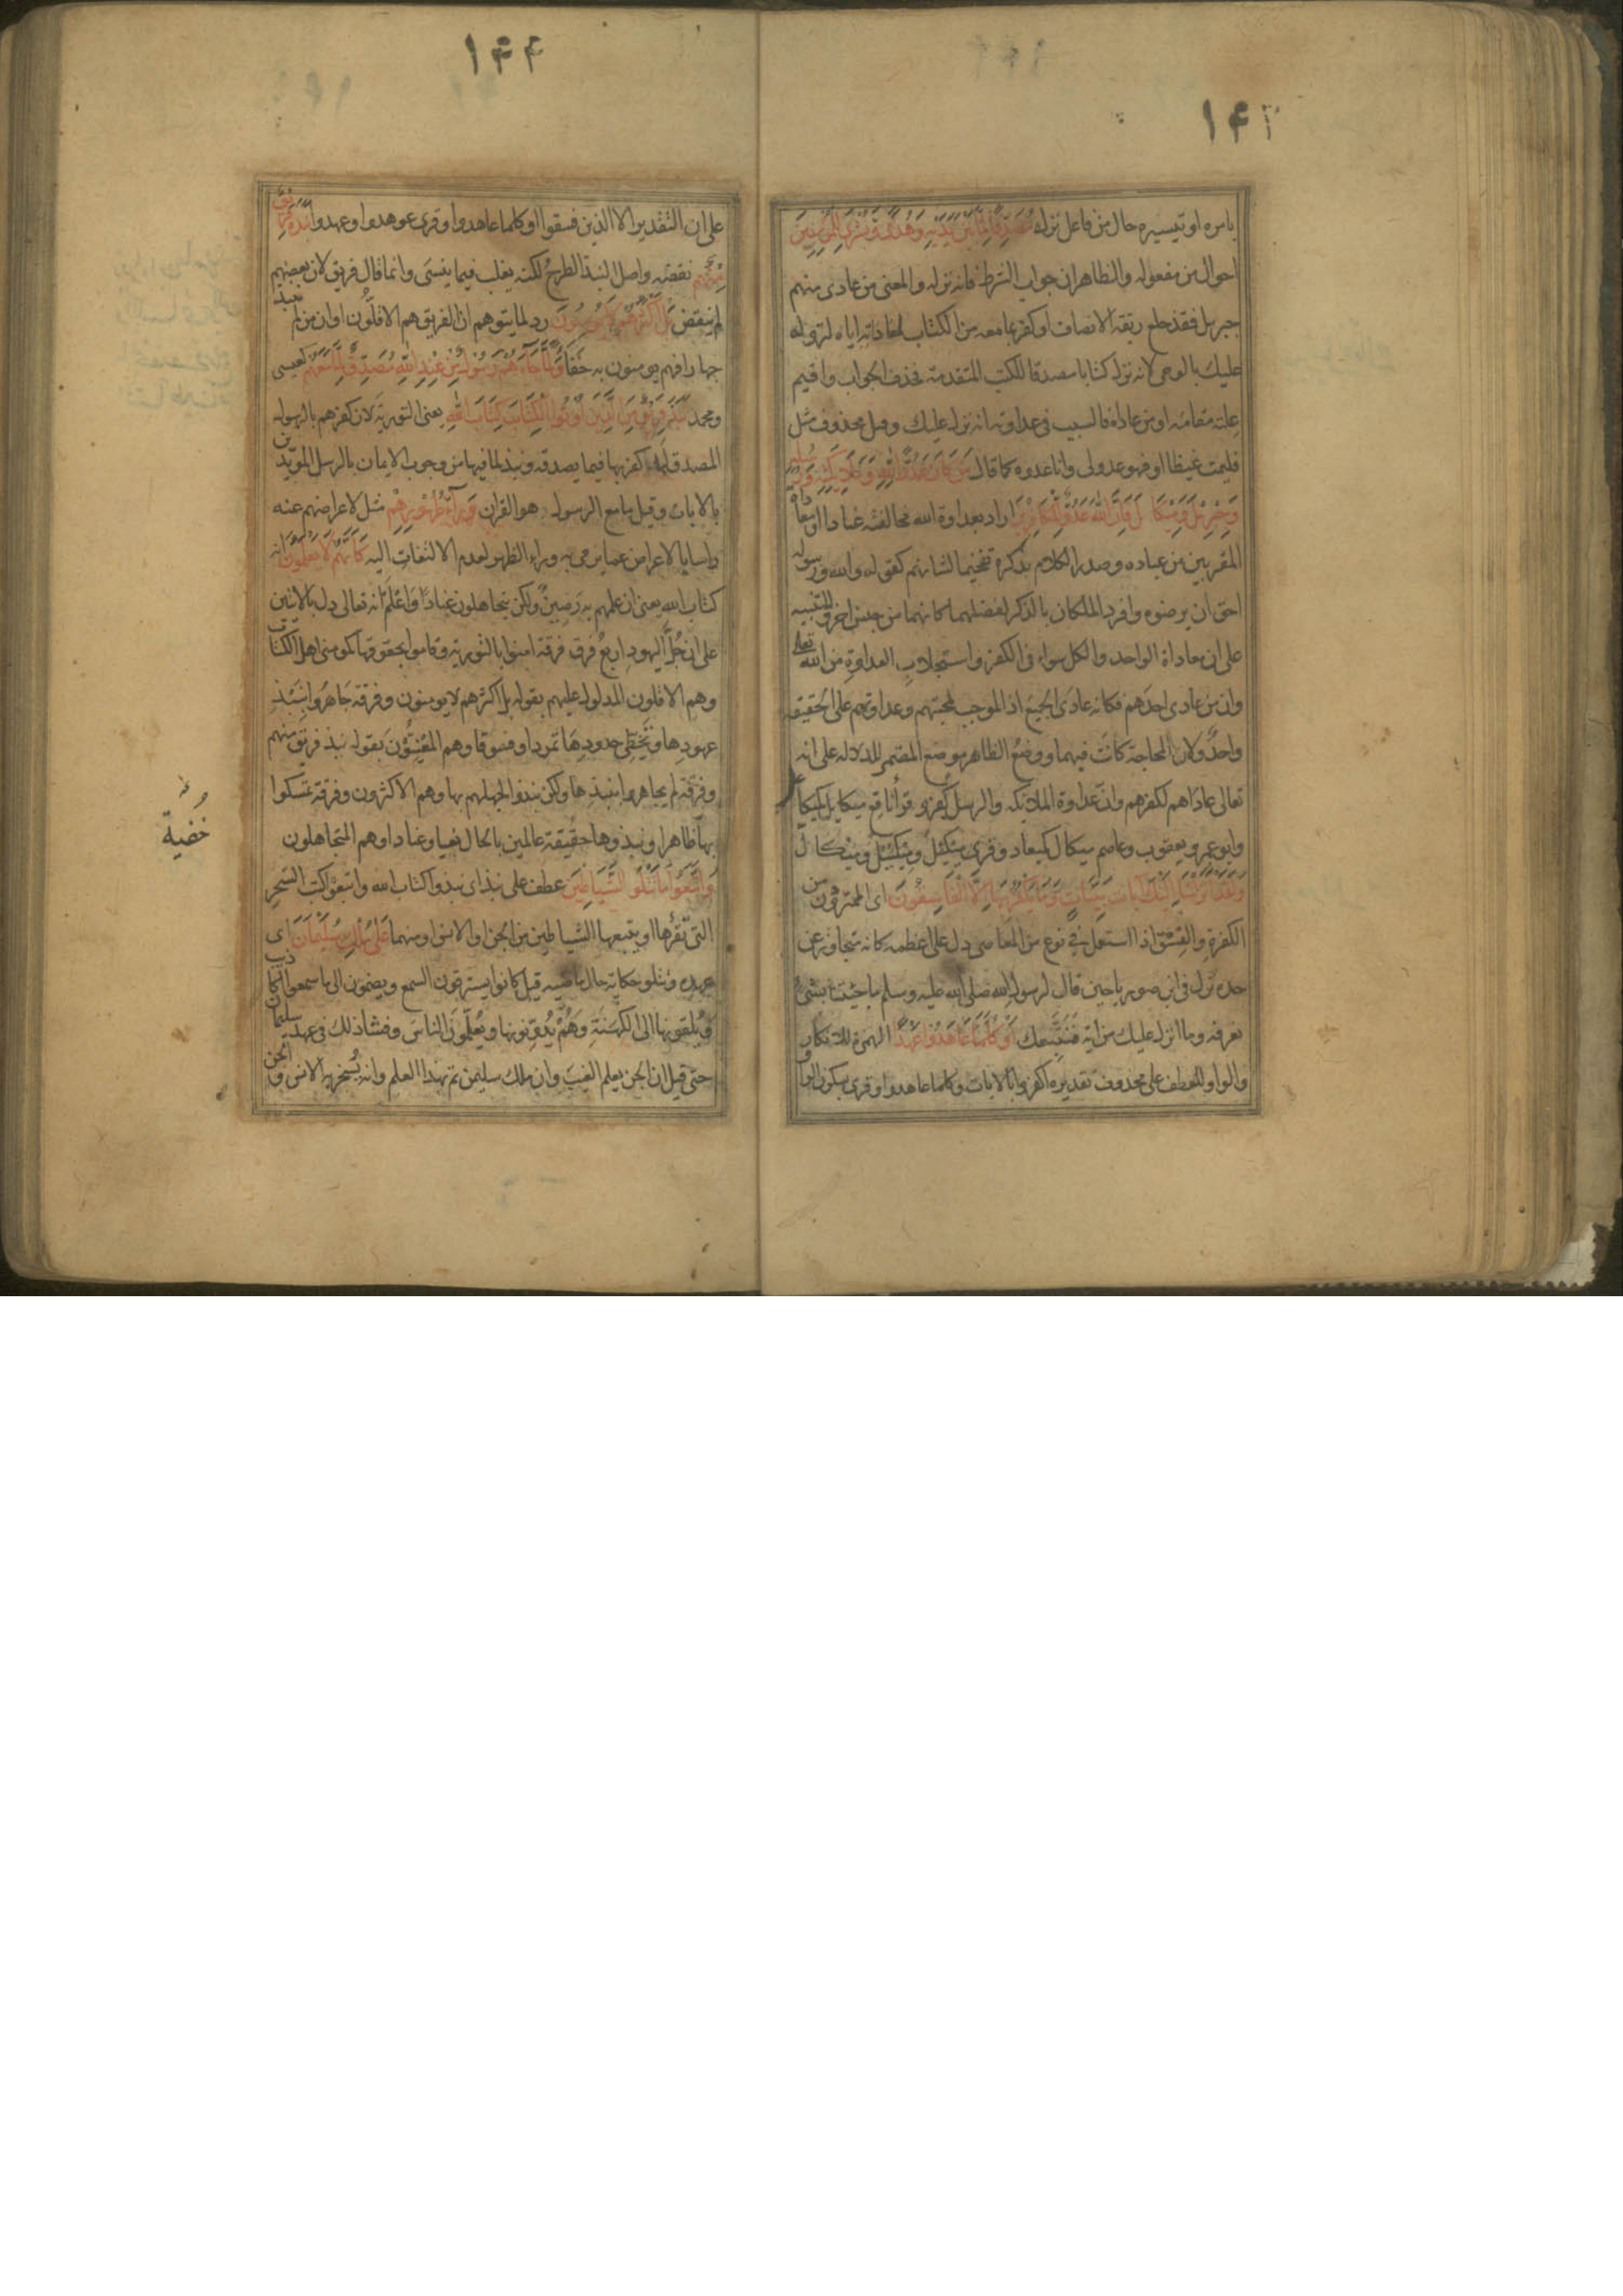 ١٤٣
بامره او تيسيره حال من فاعل نزله مُصَدِّقًا لِمَا بَيْنَ يَدَيْهِ وَهُدًى وَبُشْرَى لِلْمُؤْمِنِينَ
احوال من مفعوله والظاهر ان جواب الشرط فانه نزله والمعنى من عادى منهم
جبريل فقد خلع ربقة الانصاف او كفر بما معه من الكتاب لمعاداته اياه لنزوله
عليك بالوحى لانه نزل كتابا مصدقا للكتب المتقدمة فحذف الجواب واقيم
علته مقامه او من عاداه فالسبب فى عداوته انه نزله عليك وقيل محذوف مثل
فليمت غيظا او فهو عدو لى وانا عدوه كما قال مَنْ كَانَ عَدُوًّا لِلَّهِ وَمَلَائِكَتِهِ وَرُسُلِهِ
وَجِبْرِيلَ وَمِيكَالَ فَإِنَّ اللَّهَ عَدُوٌّ لِلْكَافِرِينَ اراد بعداوة الله مخالفته عنادا او معاداة
المقربين من عباده وصدر الكلام بذكره تفخيما لشانهم كقوله والله ورسوله
احق ان يرضوه وافرد الملكان بالذكر لفضلهما كانهما من جنس اخر وللتنبيه
على ان معاداة الواحد والكل سواء فى الكفر واستجلاب العداوة من الله تعالى
وان من عادى احدهم فكانه عادى الجميع اذ الموجب لمحبتهم وعداوتهم على الحقيقة
واحد ولان المحاجة كانت فيهما ووضع الظاهر موضع المضمر للدلالة على انه
تعالى عاداهم لكفرهم وان عداوة الملائكة والرسل كفر وقرأ نافع ميكايل كميكاعل
وابو عمرو ويعقوب وعاصم ميكال كميعاد وقرئ ميكئل وميكئيل وميكال
وَلَقَدْ أَنْزَلْنَا إِلَيْكَ آيَاتٍ بَيِّنَاتٍ وَمَا يَكْفُرُ بِهَا إِلَّا الْفَاسِقُونَ اى المتمردون من
الكفرة والفسق اذا استعمل فى نوع من المعاصى دل على اعظمه كانه متجاوز عن
حده نزل فى ابن صوريا حين قال لرسول الله صلى الله عليه وسلم ما جئتنا بشئ
نعرفه وما انزل عليك من اية فنتبعك أَوَكُلَّمَا عَاهَدُوا عَهْدًا الهمزة للانكار
والواو للعطف على محذوف تقديره اكفروا بالايات وكلما عاهدوا وقرئ بسكون الواو
١٤٤
على ان التقدير الا الذين فسقوا او كلما عاهدوا وقرئ عوهدوا وعهدوا نَبَذَهُ فَرِيقٌ
مِنْهُمْ نقضه واصل النبذ الطرح لكنه يغلب فيما ينسى وانما قال فريق لان بعضهم
لم ينقض بَلْ أَكْثَرُهُمْ لَا يُؤْمِنُونَ رد لما يتوهم ان الفريق هم الاقلون او ان من لم ينبذ
جهارا فهم يومنون به خفاء وَلَمَّا جَاءَهُمْ رَسُولٌ مِنْ عِنْدِ اللَّهِ مُصَدِّقٌ لِمَا مَعَهُمْ كعيسى
ومحمد نَبَذَ فَرِيقٌ مِنَ الَّذِينَ أُوتُوا الْكِتَابَ كِتَابَ اللَّهِ يعنى التورية لان كفرهم بالرسول
المصدق لها كفر بها فيما يصدقه ونبذ لما فيها من وجوب الايمان بالرسل المويدين
بالايات وقيل ما مع الرسول هو القران وَرَاءَ ظُهُورِهِمْ مثل لاعراضهم عنه
راسا بالاعراض عما يرمى به وراء الظهر لعدم الالتفات اليه كَأَنَّهُمْ لَا يَعْلَمُونَ انه
كتاب الله يعنى ان علمهم به رصين ولكن يتجاهلون عنادا واعلم انه تعالى دل بالايتين
على ان جل اليهود اربع فرق فرقة امنوا بالتورية وقاموا بحقوقها كمومنى اهل الكتاب
وهم الاقلون المدلول عليهم بقوله بل اكثرهم لا يومنون وفرقة جاهروا بنبذ
عهودها وتخطى حدودها تمردا وفسوقا وهم المعنيون بقوله نبذ فريق منهم
وفرقة لم يجاهروا بنبذها ولكن نبذوا لجهلهم بها وهم الاكثرون وفرقة تمسكوا
بها ظاهرا ونبذوها حقيقة عالمين بالحال بغيا وعنادا وهم المتجاهلون
خُفية
وَاتَّبَعُوا مَا تَتْلُو الشَّيَاطِينُ عطف على نبذ اى نبذوا كتاب الله واتبعوا كتب السحر
التى تقرأها او يتبعها الشياطين من الجن والانس او منهما عَلَى مُلْكِ سُلَيْمَانَ اى
عهده وتتلو حكاية حال ماضية قيل كانوا يسترقون السمع ويضمون الى ما سمعوا اكاذيب
ويلقونها الى الكهنة وهم يدونونها ويعلمون الناس وفشا ذلك فى عهد سليمان
حتى قيل ان الجن يعلم الغيب وان ملك سليمن تم بهذا العلم وانه تسخر به الانس والجن